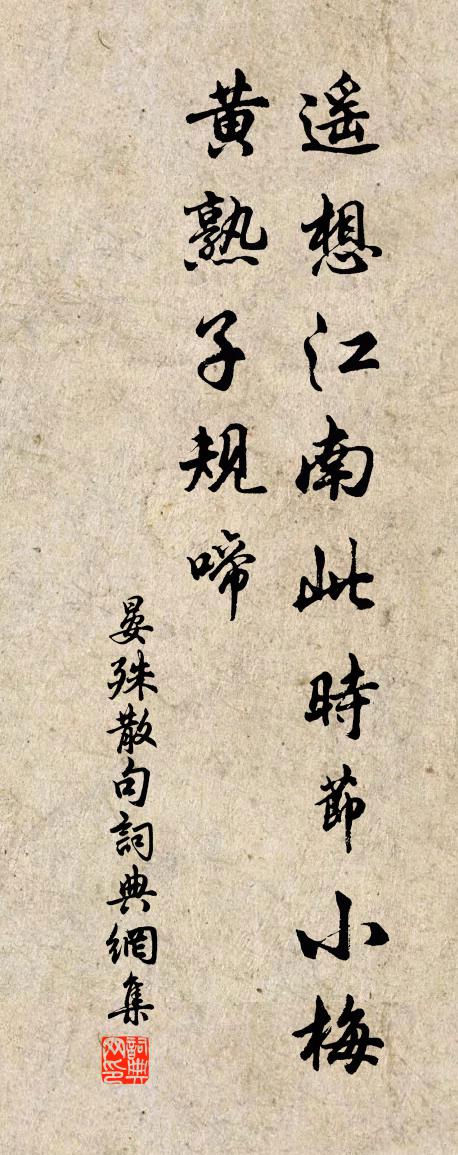 遥想江南此時節小梅
黄熟子規啼
晏殊散句詞典網集
詞典网印